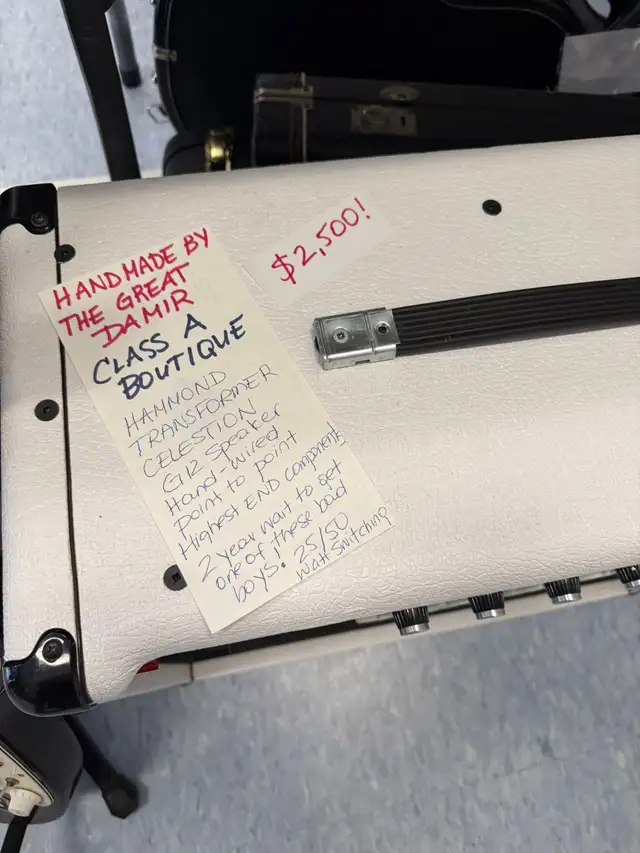 HANDMADE BY
THE GREAT
DAMIR
CLASS A
BOUTIQUE
HAMMOND
TRANSFORMER
CELESTION
G12 Speaker
Hand-wired
point to point
Highest END components
2 year wait to get
one of these bad
boys. 25/50
Watt Switching
$2,500!